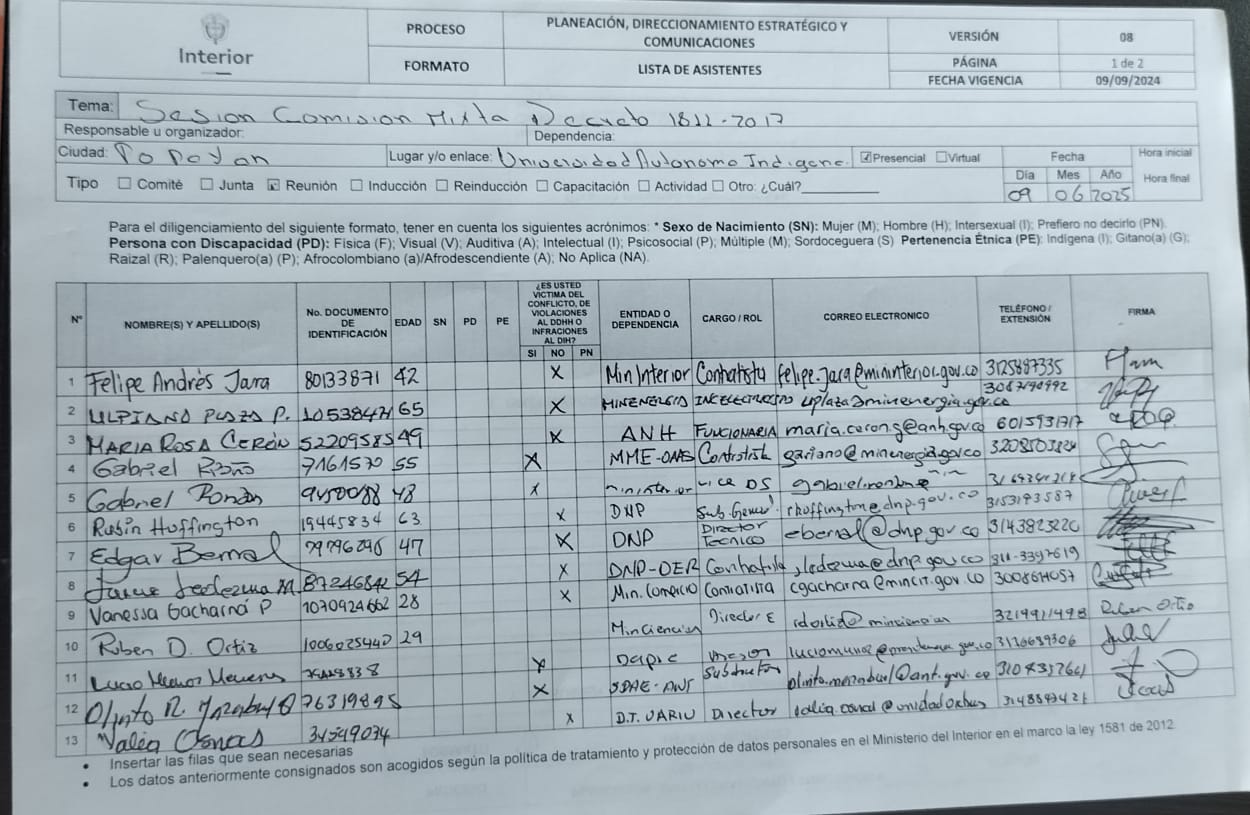 Interior
PROCESO
PLANEACIÓN, DIRECCIONAMIENTO ESTRATÉGICO Y
COMUNICACIONES
VERSIÓN
08
FORMATO
LISTA DE ASISTENTES
PÁGINA
1 de 2
FECHA VIGENCIA
09/09/2024
Tema: Sesion Comision Mixta Decreto 1811-2017
Responsable u organizador: Dependencia:
Ciudad: Popayan Lugar y/o enlace: Universidad Autonoma Indigena. Presencial Virtual Fecha Hora inicial
Día Mes Año Hora final
Tipo Comité Junta x Reunión Inducción Reinducción Capacitación Actividad Otro: ¿Cuál?
09 06 2025
Para el diligenciamiento del siguiente formato, tener en cuenta los siguientes acrónimos: * Sexo de Nacimiento (SN): Mujer (M); Hombre (H); Intersexual (I); Prefiero no decirlo (PN).
Persona con Discapacidad (PD): Física (F); Visual (V); Auditiva (A); Intelectual (I); Psicosocial (P); Múltiple (M); Sordoceguera (S) Pertenencia Étnica (PE): Indígena (I); Gitano(a) (G);
Raizal (R); Palenquero(a) (P); Afrocolombiano (a)/Afrodescendiente (A); No Aplica (NA).
N°
NOMBRE(S) Y APELLIDO(S)
No. DOCUMENTO
DE
IDENTIFICACIÓN
EDAD
SN
PD
PE
¿ES USTED
VICTIMA DEL
CONFLICTO, DE
VIOLACIONES
AL DDHH O
INFRACIONES
AL DIH?
SI NO PN
ENTIDAD O
DEPENDENCIA
CARGO / ROL
CORREO ELECTRONICO
TELÉFONO /
EXTENSIÓN
FIRMA
1 Felipe Andrés Jara 80133871 42 X MinInterior Contratista felipe.jara@mininterior.gov.co 3125887335
2 ULPIANO PLAZA P. 65 X MINENERGIA uplaza@minenergia.gov.co
3 MARIA ROSA CERÓN 52209585 49 X ANH FUNCIONARIA maria.ceron@anh.gov.co
4 Gabriel 7161570 55 X MME-OAAS Contratista @minenergia.gov.co
5 Gabriel 48 X
6 Robin Hoffington 19445834 63 X DNP rhoffington@dnp.gov.co 3153193587
7 Edgar Bernal 79796296 47 X DNP Director Tecnico ebernal@dnp.gov.co 3143823220
8 Jaime Ledezma M. 87246842 54 X DNP-OER Contratista jledezma@dnp.gov.co
9 Vanessa Gacharná P 1070924662 28 X Min. Comercio Contratista cgacharna@mincit.gov.co
10 Ruben D. Ortiz 1006025940 29 Minciencias Director E 3219911498 Ruben Ortiz
11 Lucio X Dapre Asesor 3126639306
12 Olinto R. 76319895 X Subdirector
13 Valia 34549074 X D.T. UARIV Director
Insertar las filas que sean necesarias
Los datos anteriormente consignados son acogidos según la política de tratamiento y protección de datos personales en el Ministerio del Interior en el marco la ley 1581 de 2012